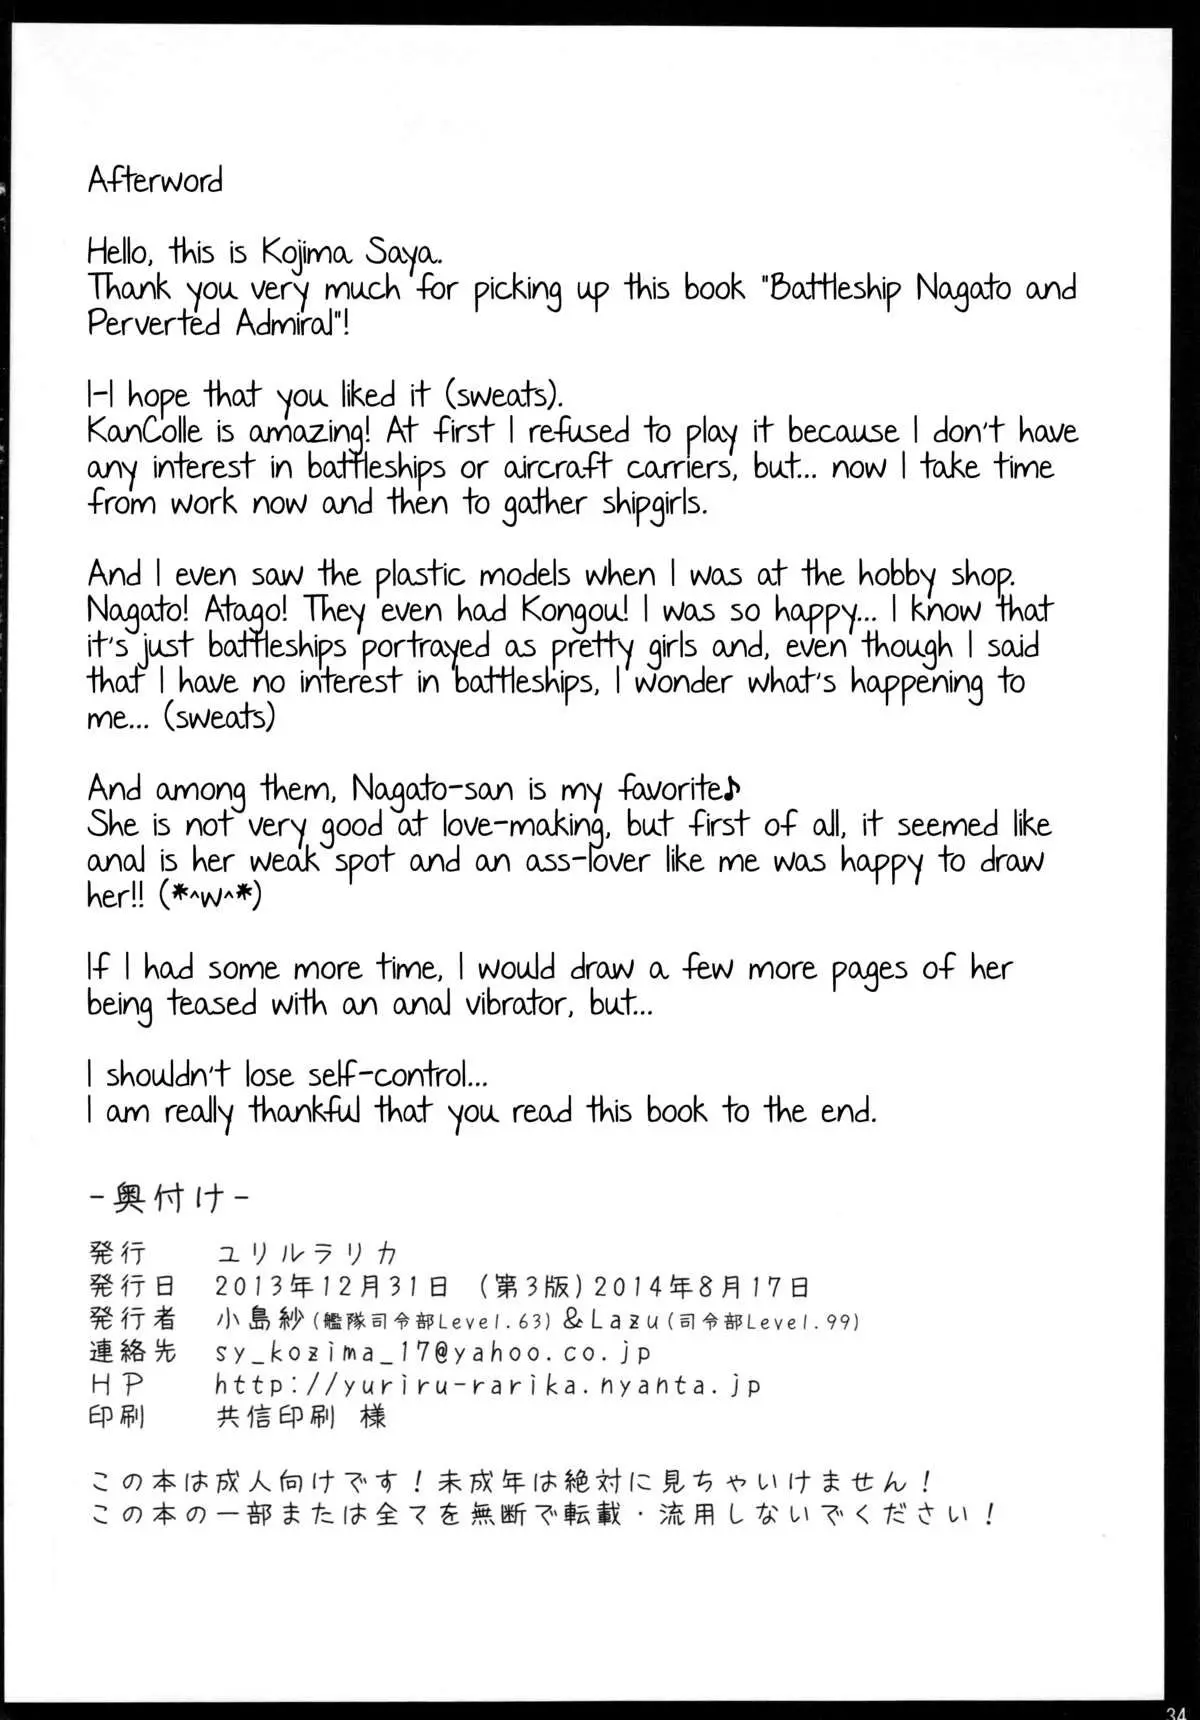 Afterword
Hello, this is Kojima Saya.
Thank you very much for picking up this book "Battleship Nagato and
Perverted Admiral"!
I-I hope that you liked it (sweats).
KanColle is amazing! At first I refused to play it because I don't have
any interest in battleships or aircraft carriers, but... now I take time
from work now and then to gather shipgirls.
And I even saw the plastic models when I was at the hobby shop.
Nagato! Atago! They even had Kongou! I was so happy... I know that
it's just battleships portrayed as pretty girls and, even though I said
that I have no interest in battleships, I wonder what's happening to
me... (sweats)
And among them, Nagato-san is my favorite♪
She is not very good at love-making, but first of all, it seemed like
anal is her weak spot and an ass-lover like me was happy to draw
her!! (*^w^*)
If I had some more time, I would draw a few more pages of her
being teased with an anal vibrator, but...
I shouldn't lose self-control...
I am really thankful that you read this book to the end.
-奥付け-
発行 ユリルラリカ
発行日 2013年12月31日 (第3版)2014年8月17日
発行者 小島紗(艦隊司令部Level.63)&Lazu(司令部Level.99)
連絡先 sy_kozima_17@yahoo.co.jp
HP http://yuriru-rarika.nyanta.jp
印刷 共信印刷 様
この本は成人向けです!未成年は絶対に見ちゃいけません!
この本の一部または全てを無断で転載・流用しないでください!
34